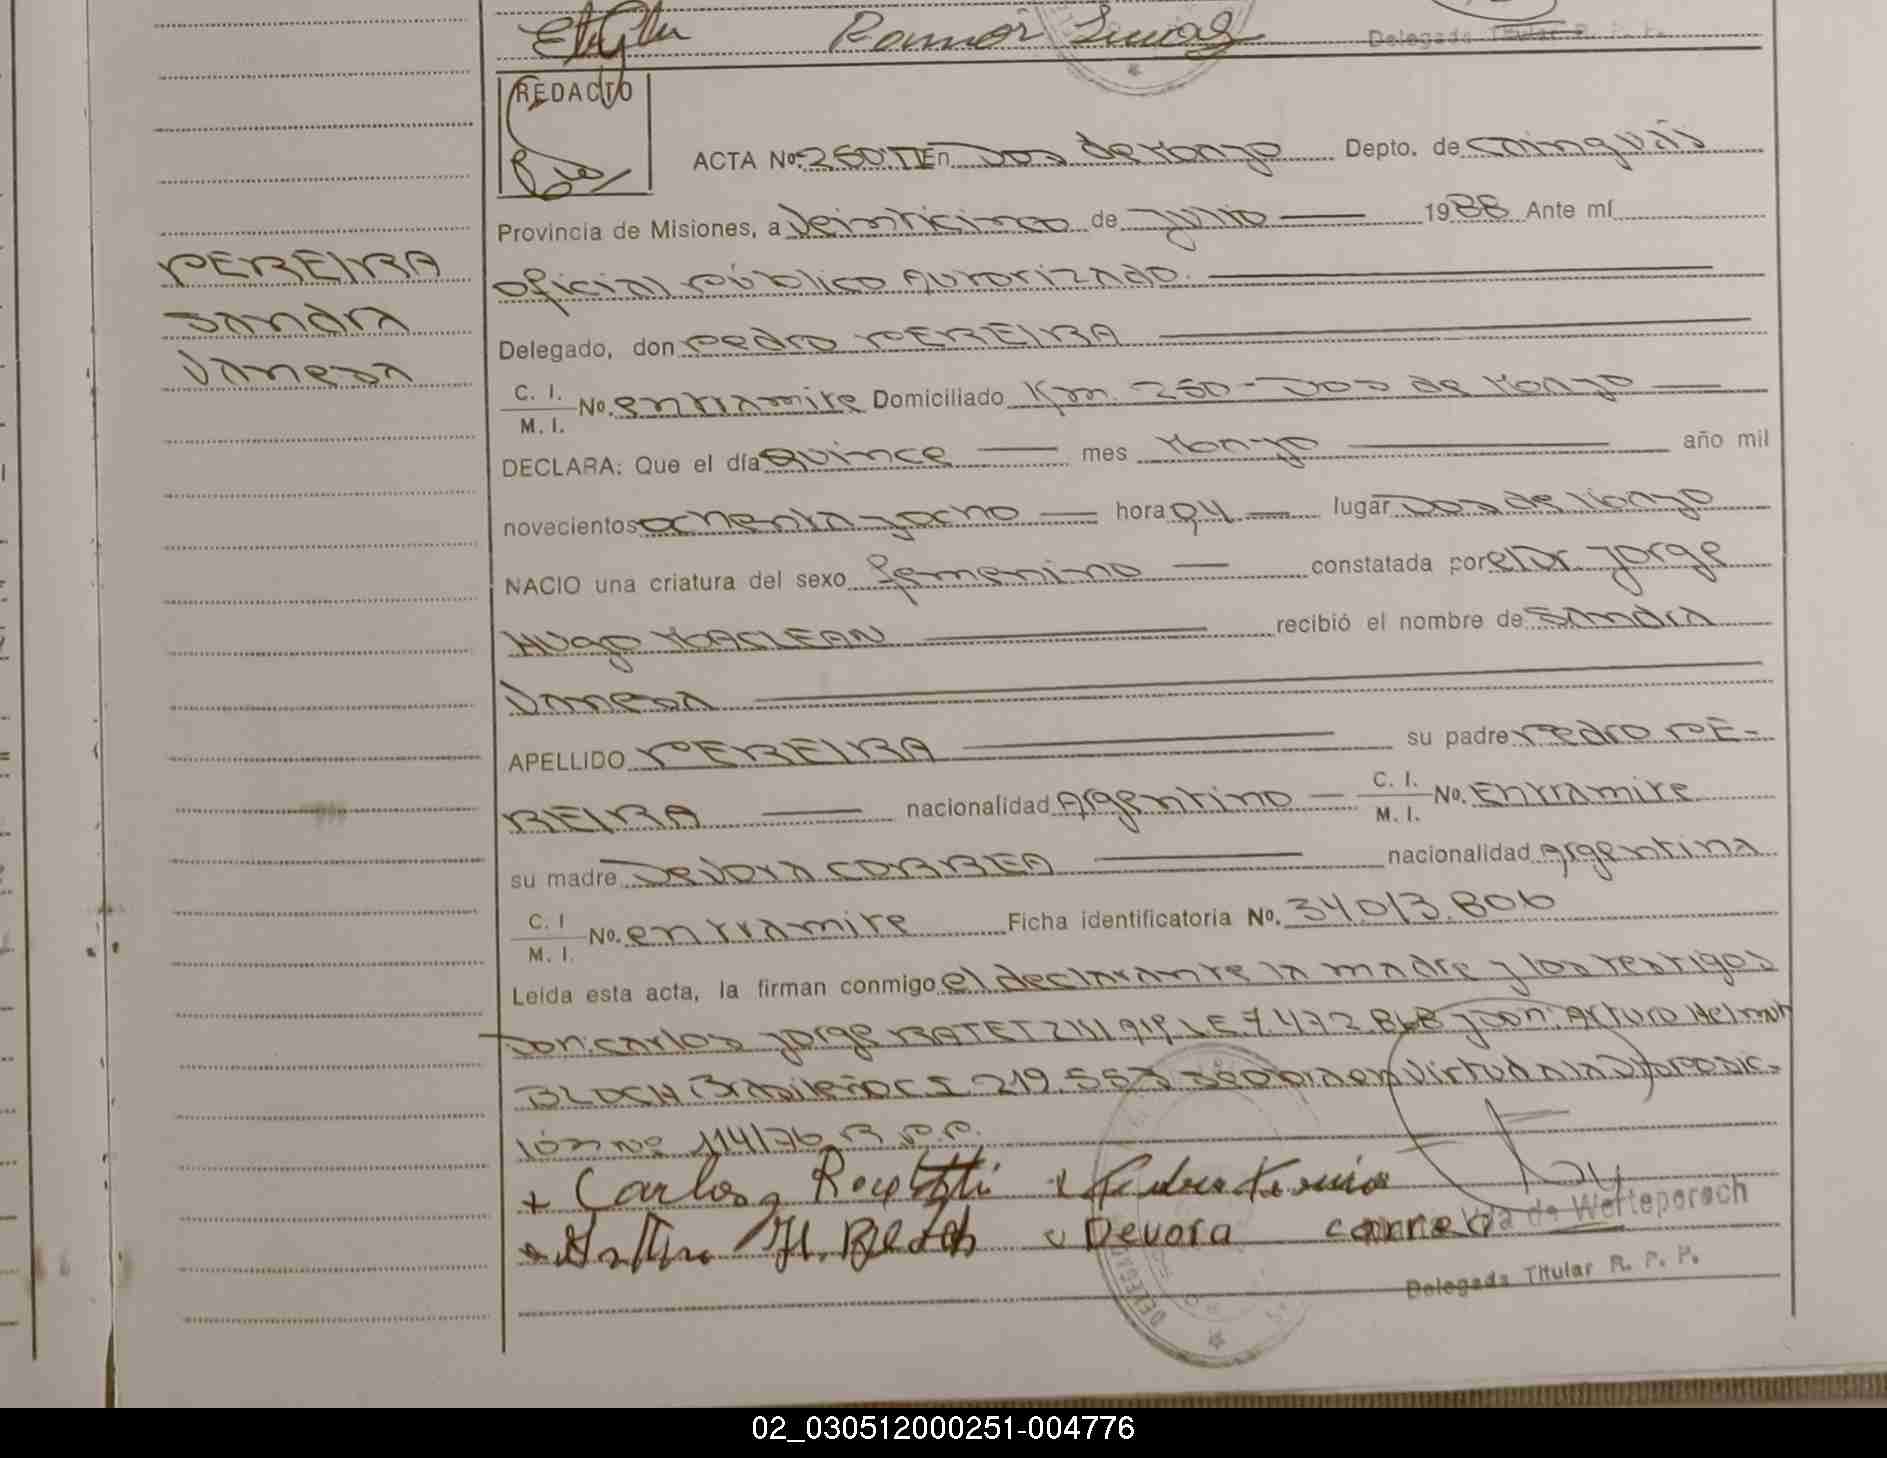 Ramón
Delegada Titular R. P. P.
REDACTO
ACTA No. 250 TI En Dos de Mayo Depto. de Cainguás
Provincia de Misiones, a veinticinco de Julio 1988 Ante mí
oficial público Autorizado.
PEREIRA
Sandra
Vanesa
Delegado, don Pedro PEREIRA
C. I. M. I. No. entramite Domiciliado Km. 250 - Dos de Mayo
DECLARA: Que el día quince mes Mayo año mil
novecientos ochenta y ocho hora 04 lugar Dos de Mayo
NACIO una criatura del sexo femenino constatada por el Dr. Jorge
Hugo MACLEAN recibió el nombre de Sandra
Vanesa
APELLIDO PEREIRA su padre Pedro PE-
REIRA nacionalidad Argentino C. I. M. I. No. Entramite
su madre Devora CORREA nacionalidad Argentina
C. I M. I. No. entramite Ficha identificatoria No. 34.013.806
Leída esta acta, la firman conmigo el declarante la madre y los testigos
Don: Carlos Jorge y Don: Arturo Helmut
BLOCH Brasileño C I 219.553 en virtud a la Disposic-
ión Nº 114/76 R.P.P.
Carlos
Devora correa
Vda de Werteporoch
Delegada Titular R. P. P.
02_030512000251-004776